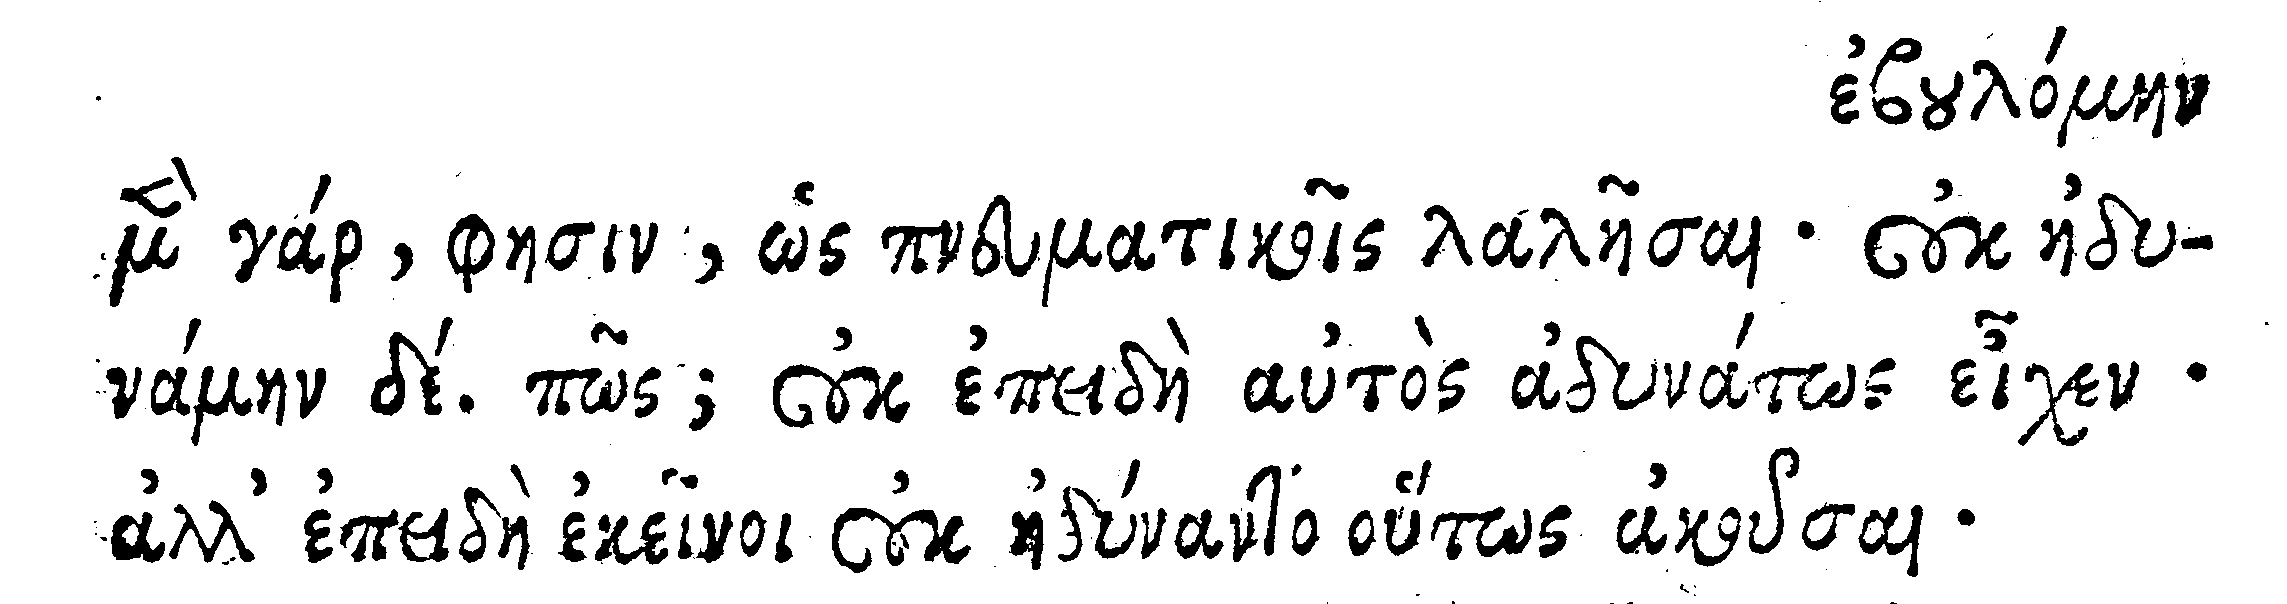 ἐβουλόμην
μὲν γάρ, φησιν, ὡς πνευματικοῖς λαλῆσαι· οὐκ ἠδυ-
νάμην δέ. πῶς; οὐκ ἐπειδὴ αὐτὸς ἀδυνάτως εἶχεν·
ἀλλ' ἐπειδὴ ἐκεῖνοι οὐκ ἠδύναντο οὕτως ἀκοῦσαι·